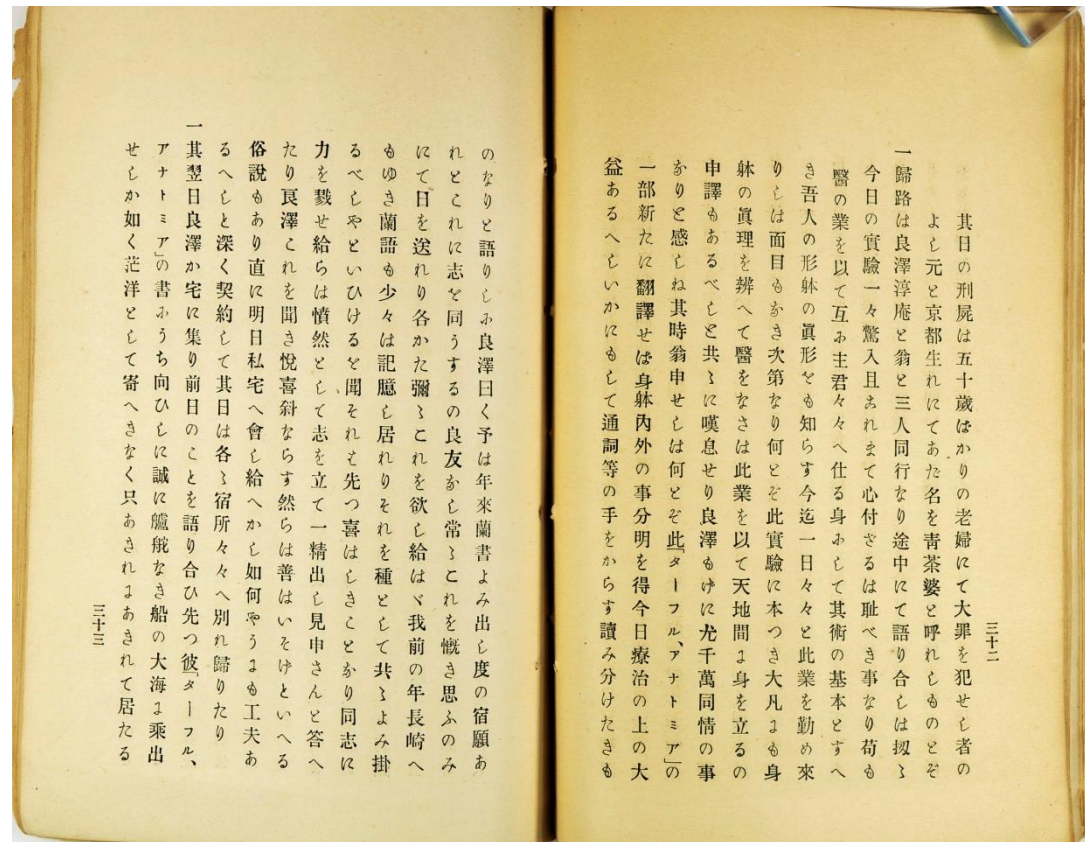 其日の刑屍は五十歳ばかりの老婦にて大罪を犯せし者の
よし元と京都生れにてあだ名を青茶婆と呼れしものとぞ
一歸路は良澤淳庵と翁と三人同行なり途中にて語り合しは扨〻
今日の實驗一々驚入且これまて心付さるは耻べき事なり苟も
醫の業を以て互に主君々々へ仕る身にして其術の基本とすへ
き吾人の形躰の眞形をも知らす今迄一日々々と此業を勤め來
りしは面目もなき次第なり何とぞ此實驗に本つき大凡にも身
躰の眞理を辨へて醫をなさは此業を以て天地間に身を立るの
申譯もあるべしと共〻に嘆息せり良澤もけに尤千萬同情の事
なりと感しね其時翁申せしは何とぞ此「ターフル、アナトミア」の
一部新たに翻譯せば身躰内外の事分明を得今日療治の上の大
益あるへしいかにもして通詞等の手をからす讀み分けたきも
三十二
のなりと語りしに良澤曰く予は年來蘭書よみ出し度の宿願あ
れとこれに志を同うするの良友なし常〻これを慨き思ふのみ
にて日を送れり各かた彌〻これを欲し給はヾ我前の年長崎へ
もゆき蘭語も少々は記臆し居れりそれを種として共〻よみ掛
るべしやといひけるを聞それも先つ喜はしきことなり同志に
力を戮せ給らは憤然として志を立て一精出し見申さんと答へ
たり良澤これを聞き悅喜斜ならす然らは善はいそけといへる
俗說もあり直に明日私宅へ會し給へかし如何やうにも工夫あ
るへしと深く契約して其日は各〻宿所々々へ別れ歸りたり
一其翌日良澤か宅に集り前日のことを語り合ひ先つ彼「ターフル、
アナトミア」の書にうち向ひしに誠に艫舵なき船の大海に乘出
せしか如く茫洋として寄へきなく只あきれにあきれて居たる
三十三